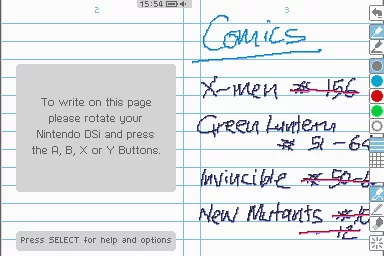 15:54
2
3
To write on this page
please rotate your
Nintendo DSi and press
the A, B, X or Y Buttons.
Press SELECT for help and options
Comics
X-men # 156
Green Luntern
# 51 - 
Invincible # 50-
New Mutants #
12